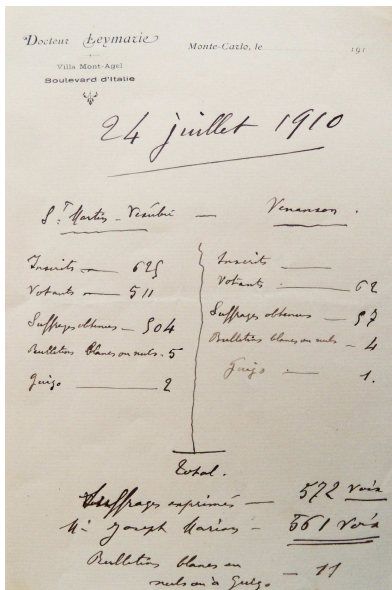 Docteur Leymarie
Monte-Carlo, le 191
Villa Mont-Agel
Boulevard d'Italie
24 juillet 1910
St Martin-Vésubie — Venanson.
Inscrits — 625
Votants — 511
Suffrages obtenus — 504
Bulletins blancs ou nuls - 5
Guigo — 2
Inscrits —
Votants — 62
Suffrages obtenus — 57
Bulletins blancs ou nuls — 4
Guigo — 1.
Total.
Suffrages exprimés — 572 voix
Mr Joseph Marian — 561 voix
Bulletins blancs ou
nuls ou à Guigo — 11